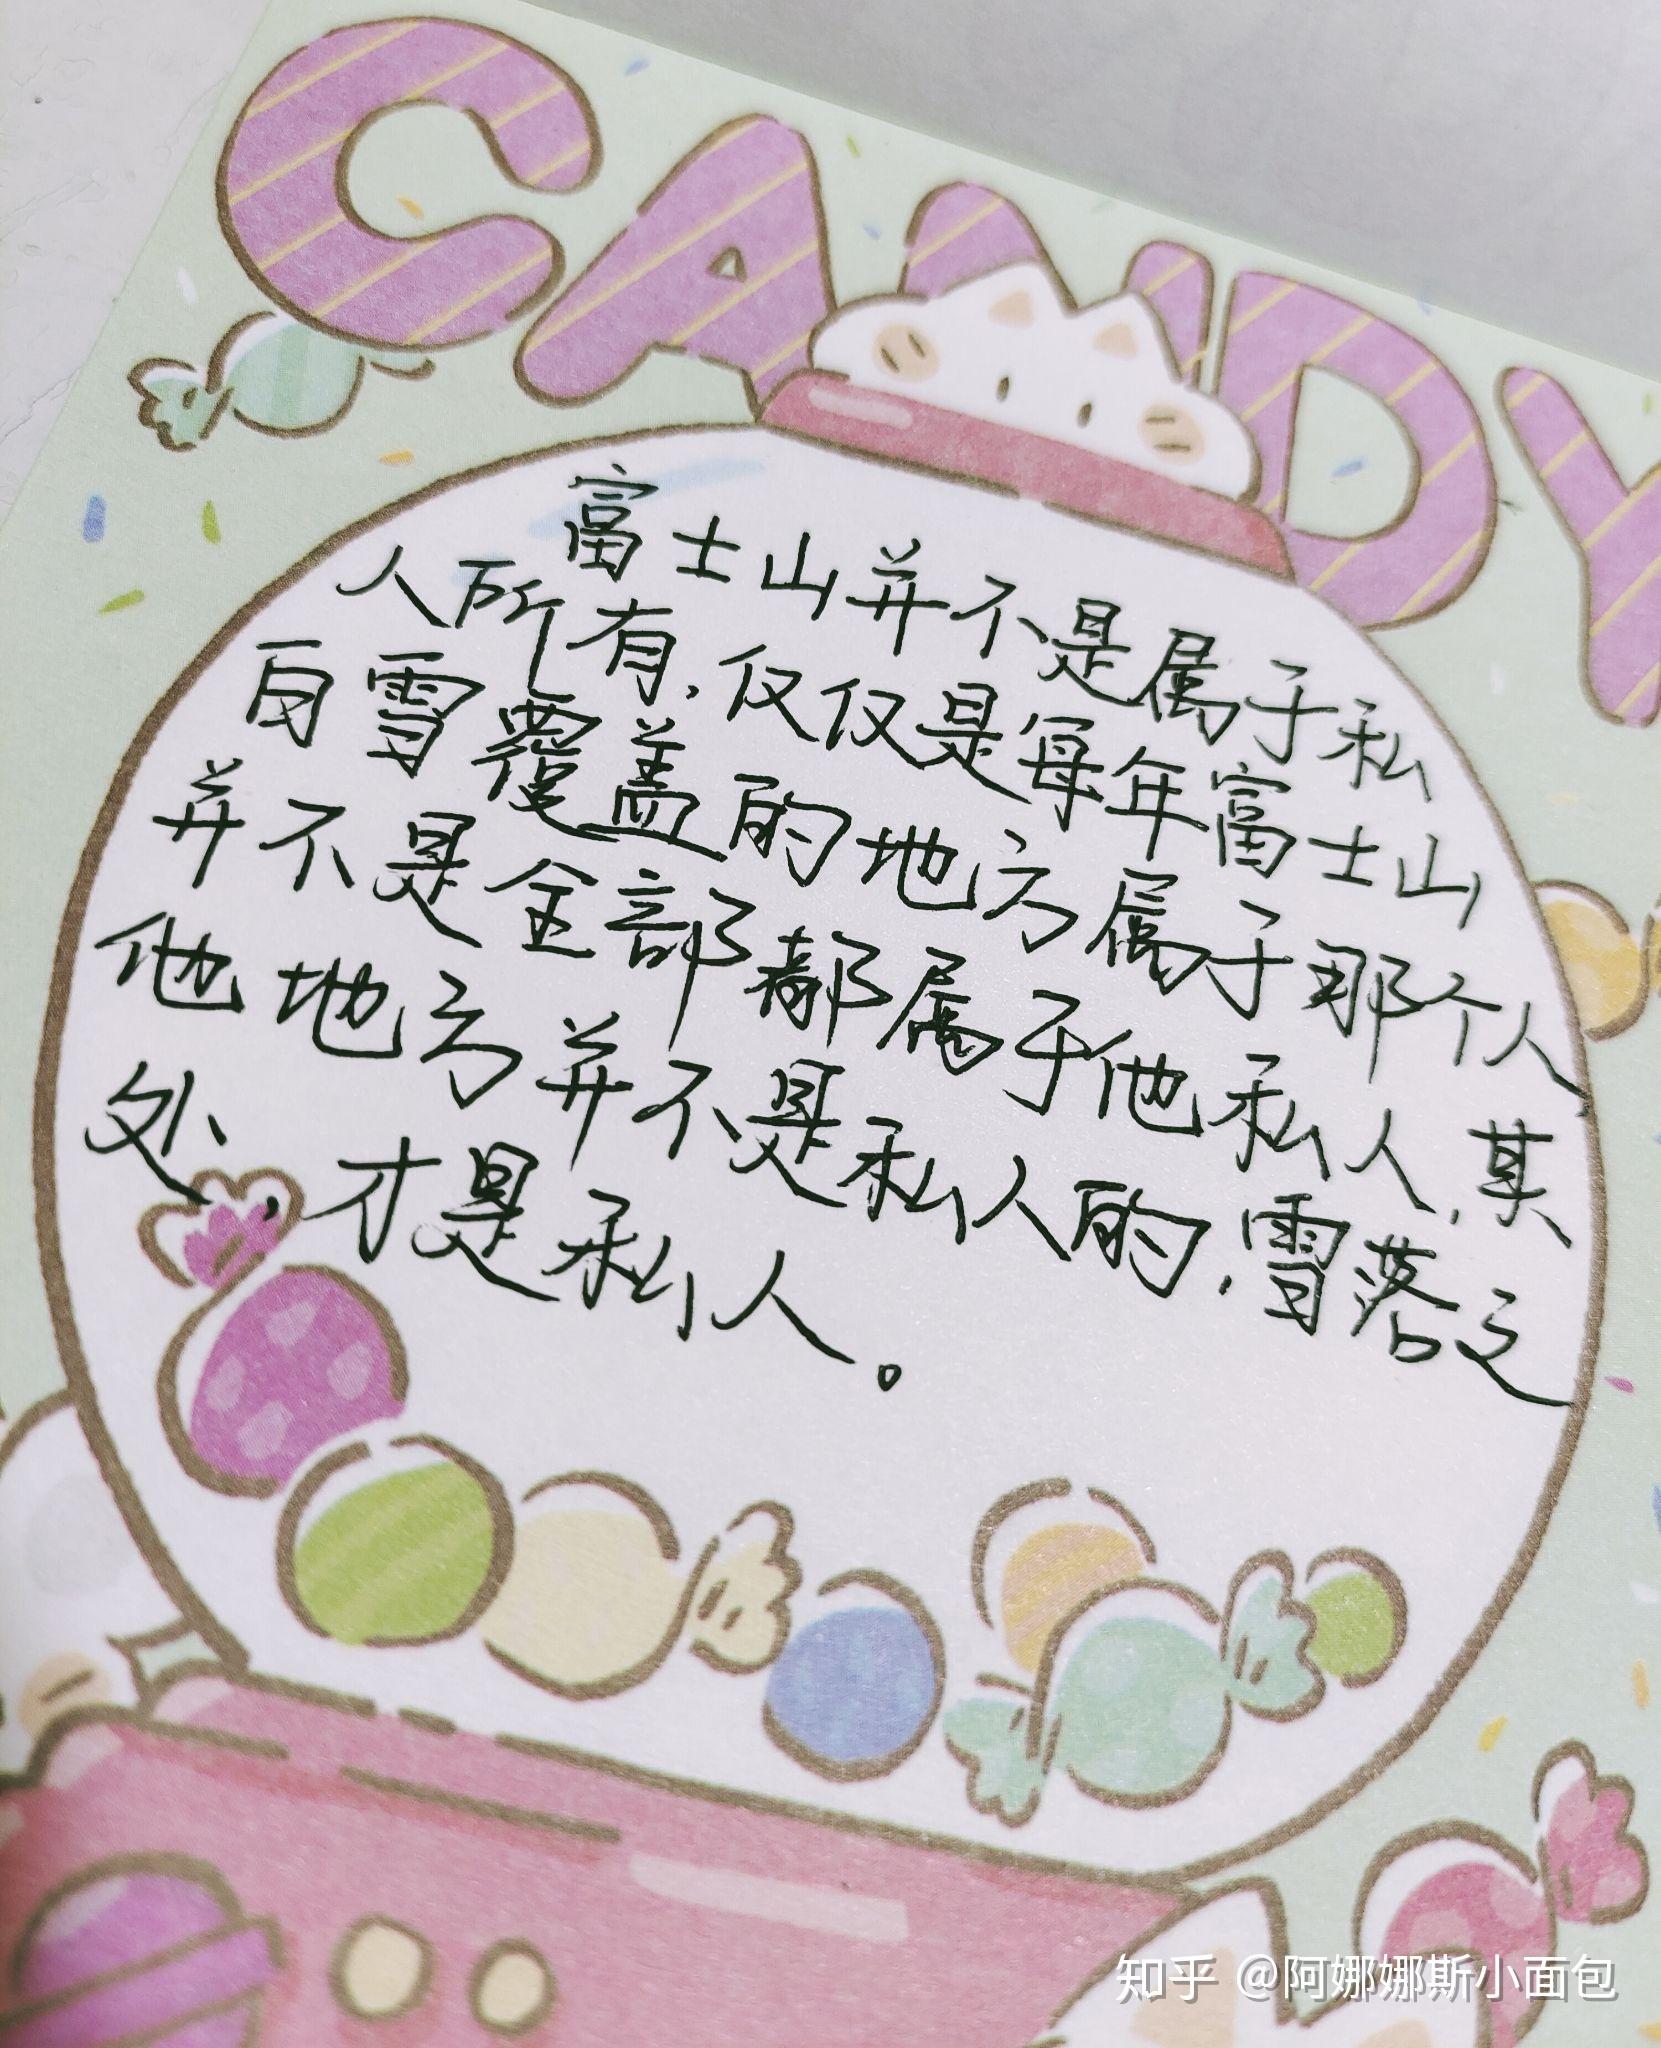 CANDY
富士山并不是属于私
人所有,仅仅是每年富士山
白雪覆盖的地方属于那个人,
并不是全部都属于他私人,其
他地方并不是私人的,雪落之
处,才是私人。
知乎 @阿娜娜斯小面包